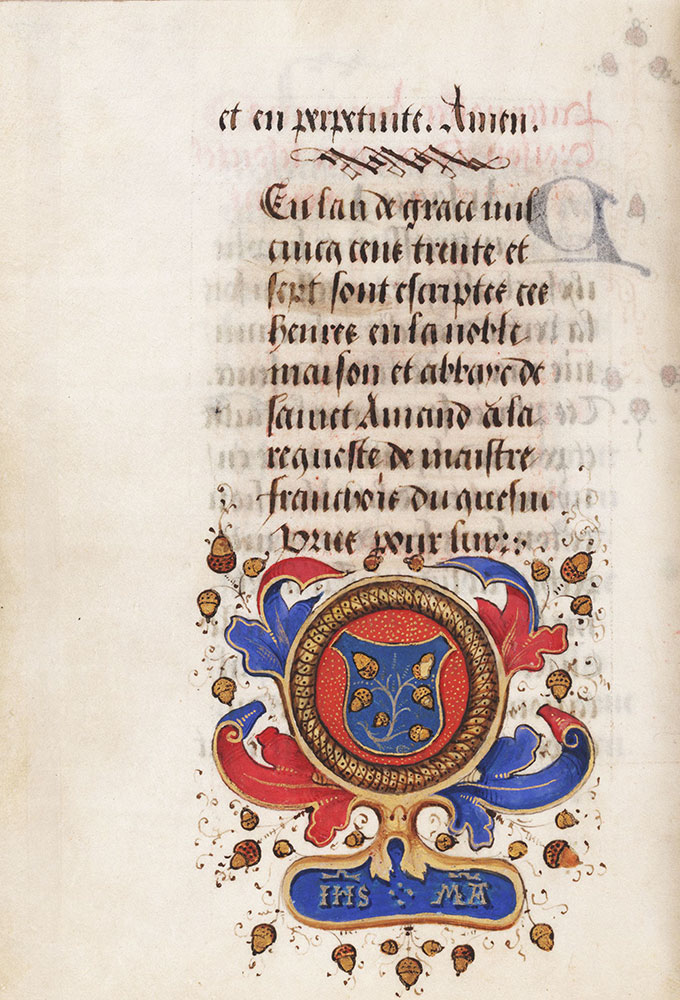 et en perpetuite. Amen.
En lan de grace mil
cincq cens trente et
sept sont escriptes ces
heures en la noble
maison et abbaye de
sainct Amand a la
requeste de maistre
franchois du quesne
Pries pour luy
IHS MA